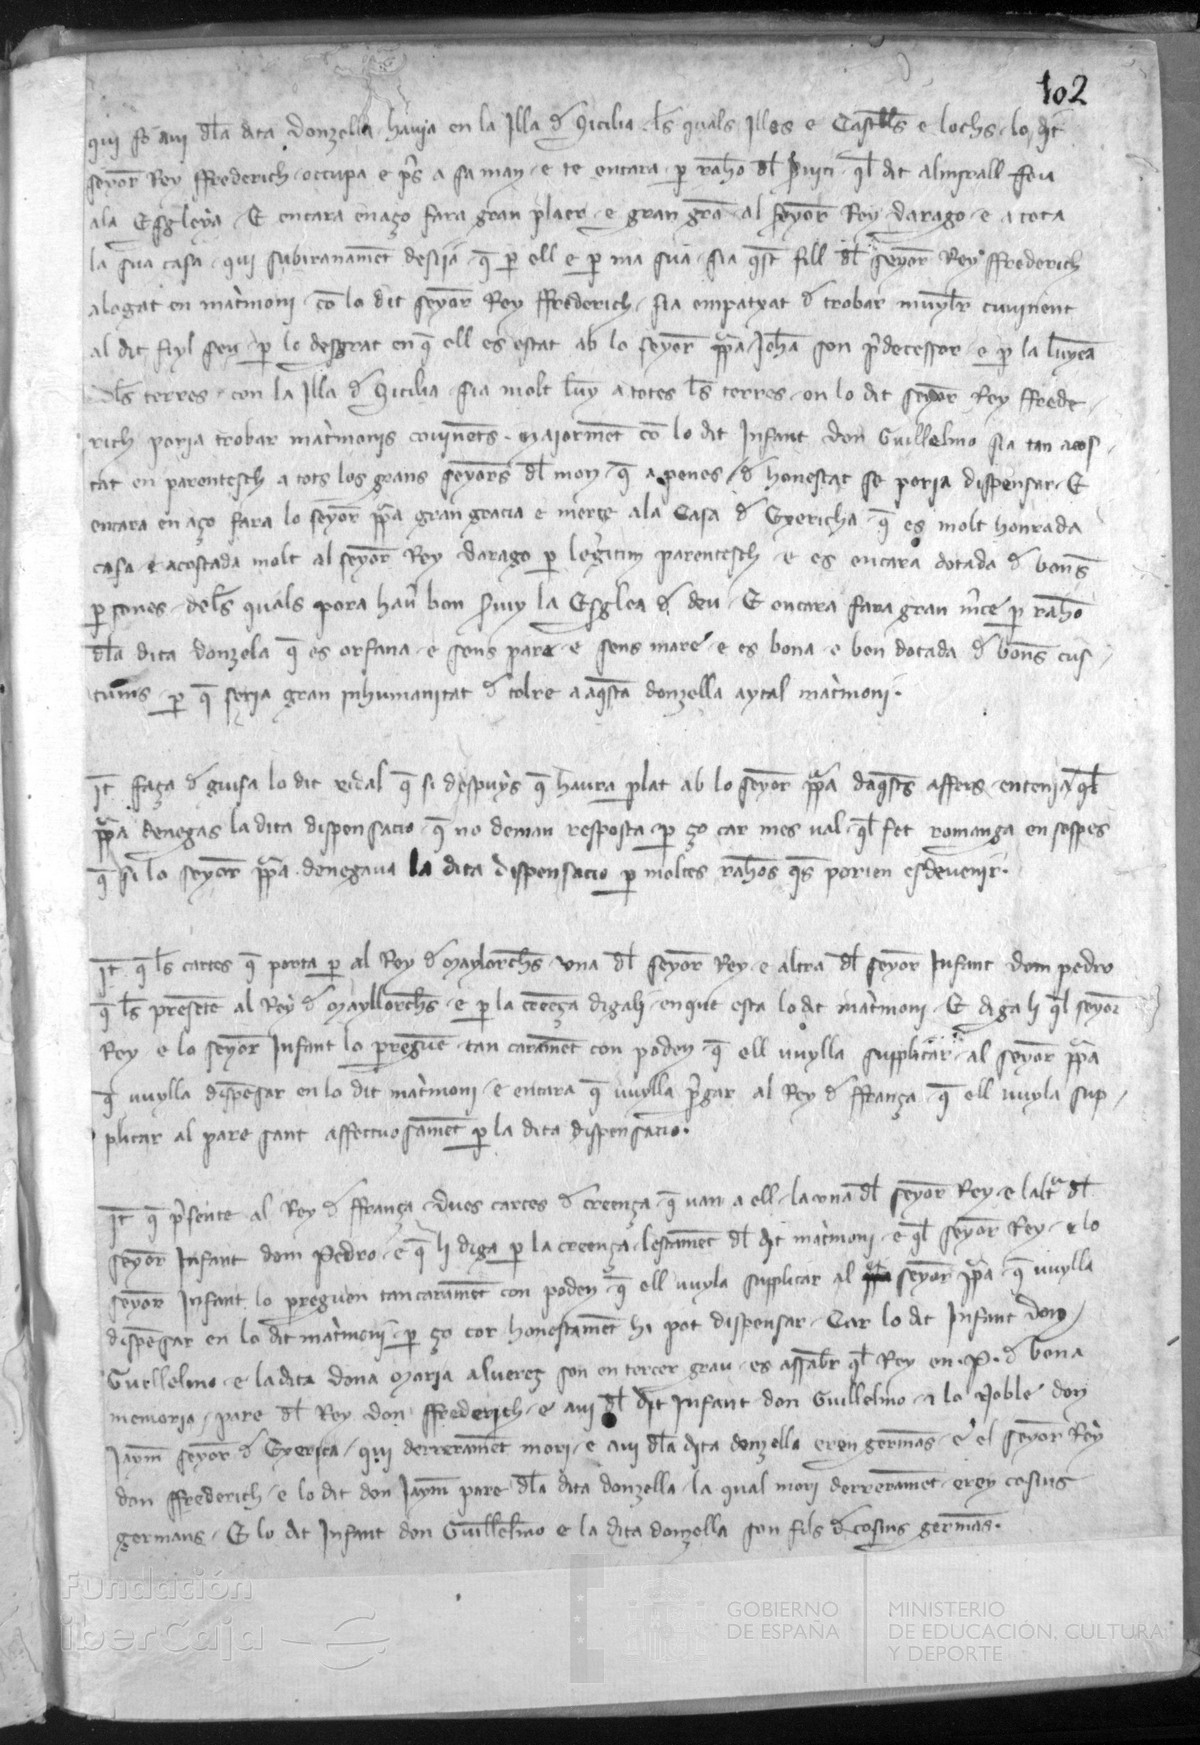 102
qui fo avi dla dita donzella havia en la Illa d Sicilia ls quals Illes e Castells e lochs lo dit
seyor Rey ffrederich occupa e ps a sa man e te encara p raho dl ql dit almirall feu
ala Esgleya E encara en aço fara gran plaer e gran gra al seyor Rey darago e a tota
la sua casa qui subiranament desija q p ell e p ma sua sia qst fill dl seyor Rey ffrederich
alogat en matrimoni co lo dit seyor Rey ffrederich sia empatxat d trobar muyler
al dit fiyl seu p lo desgrat en q ell es estat ab lo seyor ppa Joha son pdecessor e p la luyea
dls terres con la Illa d Sicilia sia molt luy a totes ls terres on lo dit seyor Rey ffrede
rich poria trobar matrimonis covinents maiorment co lo dit Infant don Guillelmo sia tan acos
tat en parentesch a tots los grans seyors dl mon q a penes d honestat se poria dispensar E
encara en aço fara lo seyor ppa gran gracia e merçe ala Casa d Exericha q es molt honrada
casa e acostada molt al seyor Rey darago p legitim parentesch e es encara dotada d bons
psones dels quals pora hau bon la Esglea d deu E encara fara gran mce p raho
dla dita donzela q es orfana e sens pare e sens mare e es bona e ben dotada d bons cus
tums p q seria gran inhumanitat d tolre a aqsta donzella aytal matrimoni
It faça d guisa lo dit vidal q si despuys q haura plat ab lo seyor ppa daqsts affers entenia ql
ppa denegas la dita dispensacio q no deman resposta p ço car mes val ql fet romanga en sospes
q si lo seyor ppa denegava la dita dispensacio p moltes rahos qs porien esdevenir
It q ls cartes q porta p al Rey d Maylorchs una dl seyor Rey e altra dl seyor Infant dom pedro
q ls presente al Rey d Mayllorchs e p la creença digali en que esta lo dit matrimoni E digali ql seyor
Rey e lo seyor Infant lo preguen tan carament con poden q ell vuylla supplicar al seyor ppa
q vuylla dispensar en lo dit matrimoni e encara q vuylla pgar al Rey d ffrança q ell vuyla sup
plicar al pare sant affectuosament p la dita dispensacio
It q psente al Rey d ffrança dues cartes d creença q van a ell la una dl seyor Rey e laltra dl
seyor Infant dom Pedro e q li diga p la creença lestament dl dit matrimoni e ql seyor Rey e lo
seyor Infant lo preguen tan carament con poden q ell vuyla supplicar al seyor ppa q vuylla
dispensar en lo dit matrimoni p ço cor honestament hi pot dispensar Car lo dit Infant don
Guillelmo e la dita dona Maria alvereç son en tercer grau es assaber ql Rey en P d bona
memoria pare dl Rey don ffrederich e avi dl dit Infant don Guillelmo e lo Noble don
Jaym seyor d Exerica qui derrerament mori e avi dla dita donzella eren germans e el seyor Rey
don ffrederich e lo dit don Jaym pare dla dita donzella la qual mori derrerament eren cosins
germans E lo dit Infant don Guillelmo e la dita donzella son fils d cosins germans
Fundación
iberCaja
GOBIERNO
DE ESPAÑA
MINISTERIO
DE EDUCACIÓN, CULTURA
Y DEPORTE